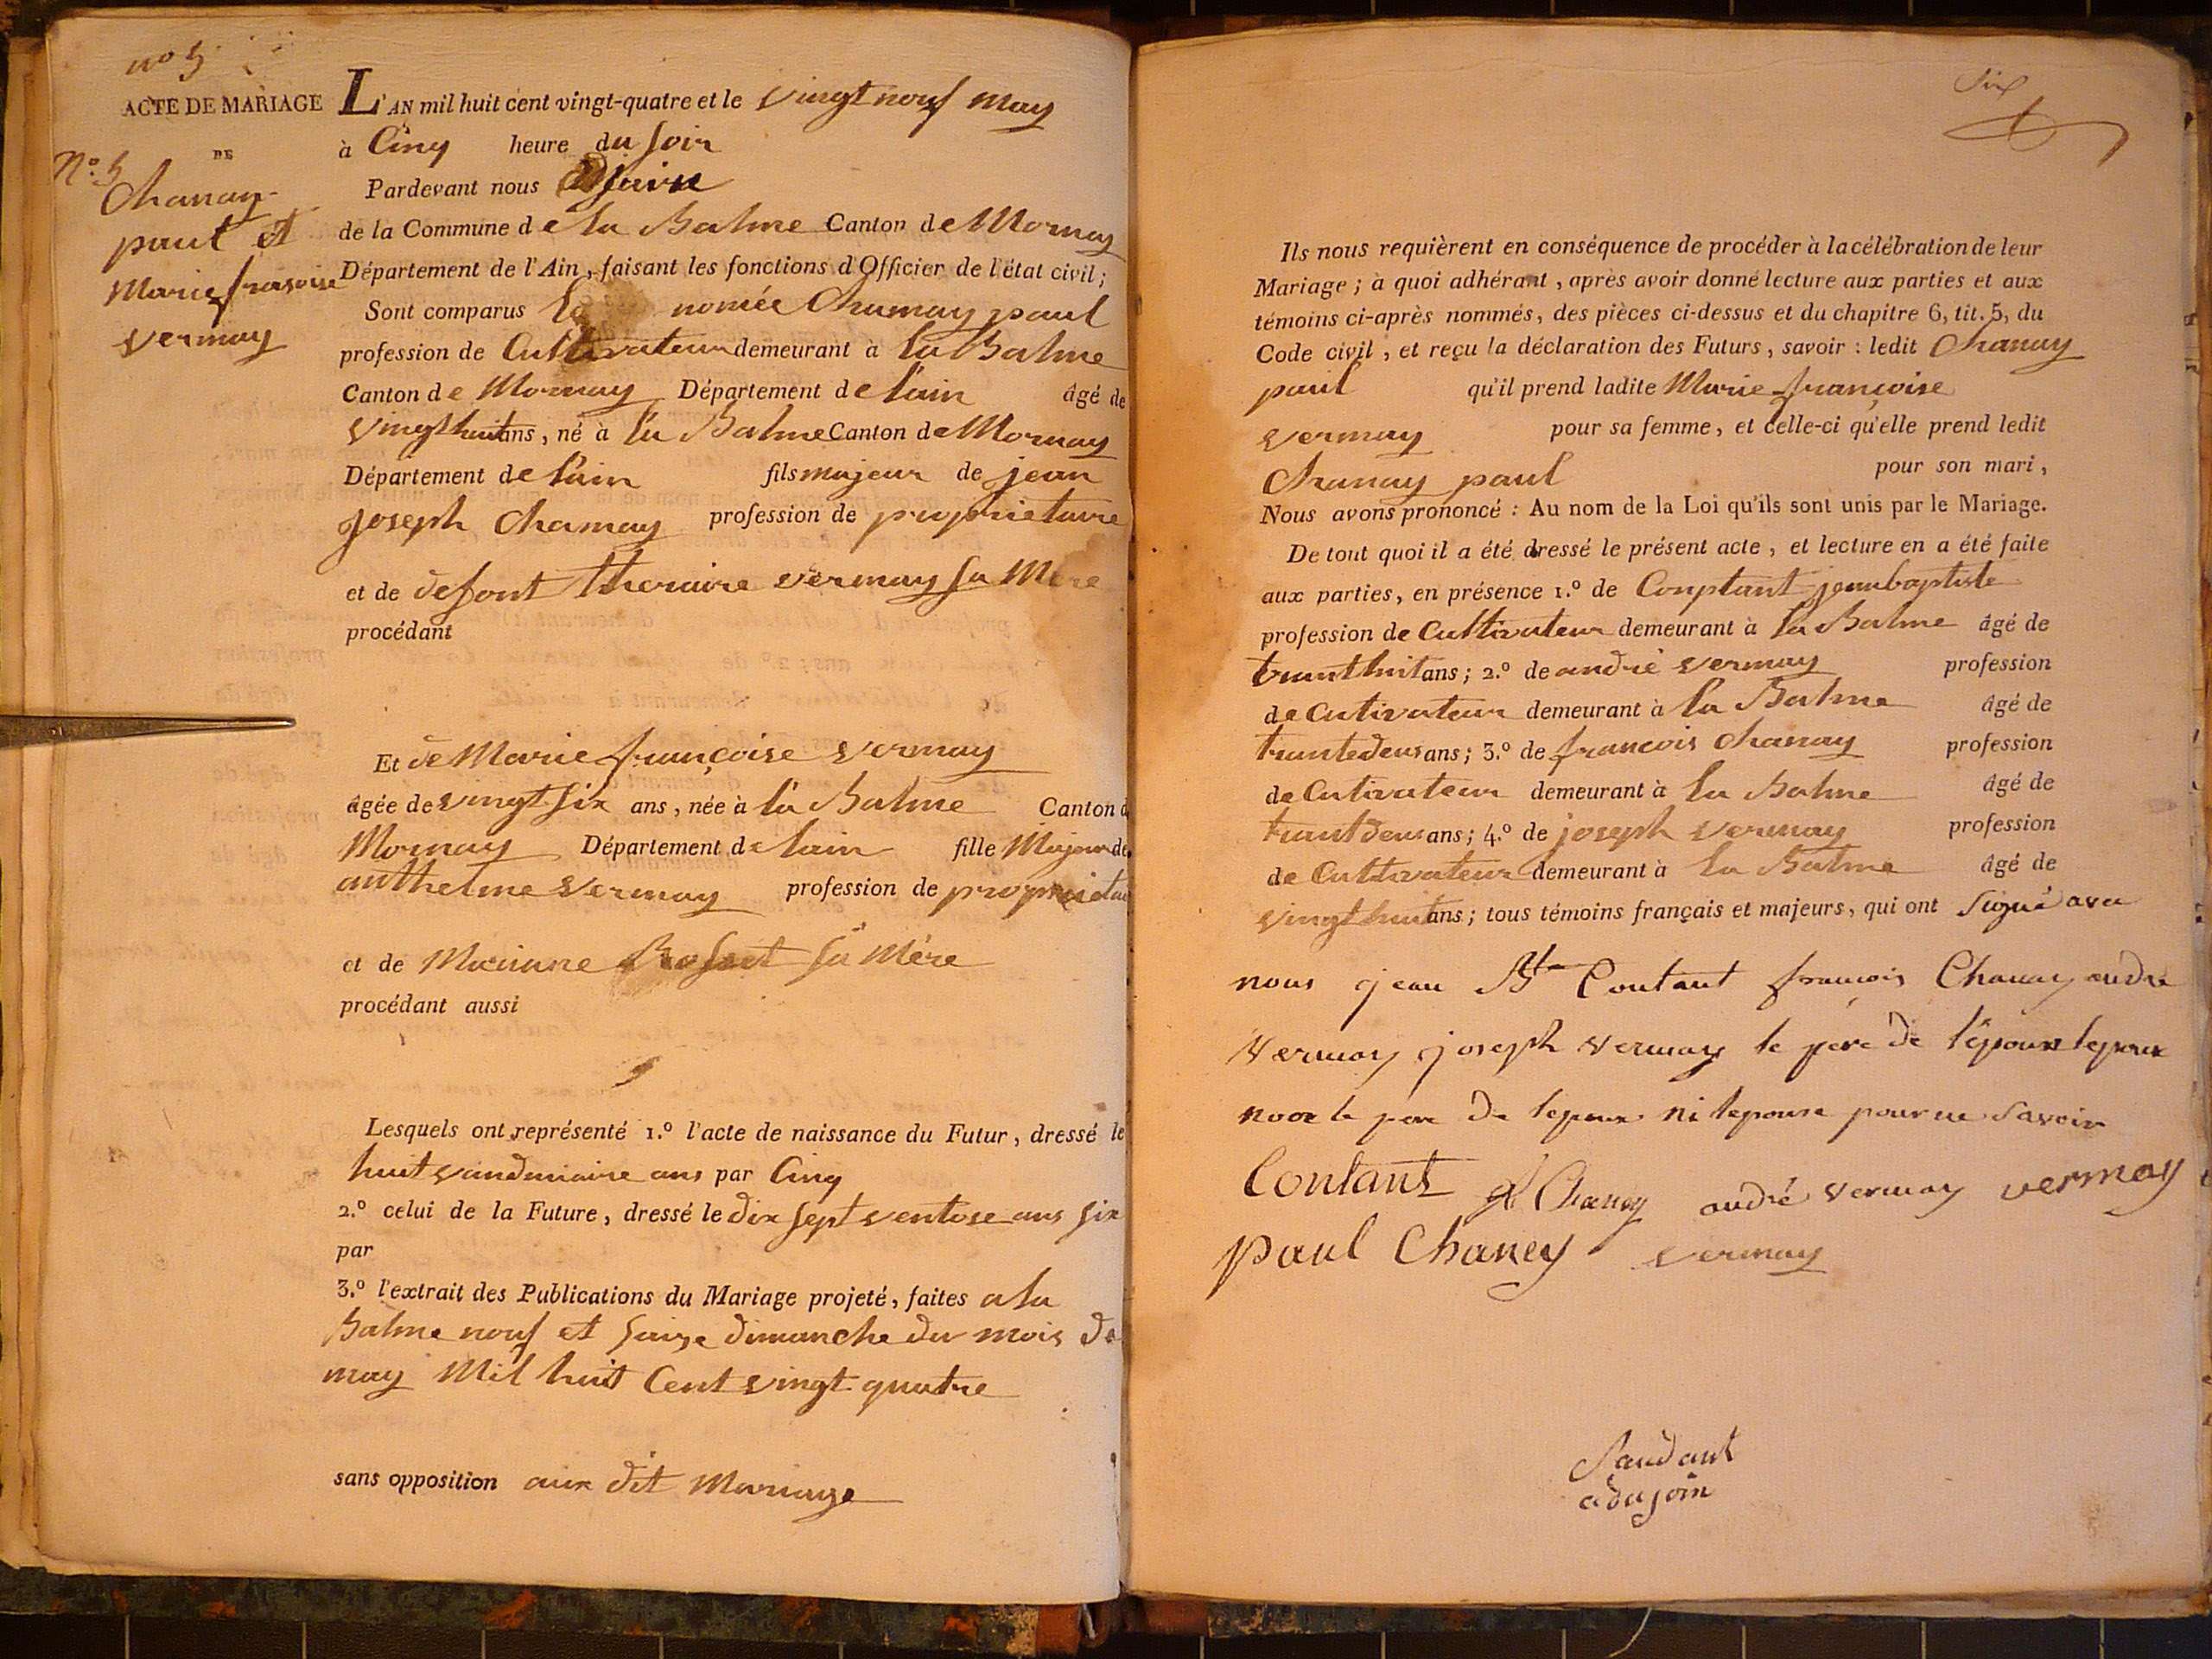 nº 5
ACTE DE MARIAGE
DE
N.º 5
Chanay
paul et
Marie frasoise
vermay
L'AN mil huit cent vingt-quatre et le vingt nouf may
à Cinq heure du soir
Pardevant nous
de la Commune de la Balme Canton de Mornay
Département de l'Ain, faisant les fonctions d'Officier de l'état civil;
Sont comparus le nomée Chamay paul
profession de Cultivateur demeurant à la Balme
Canton de Mornay Département de lain âgé de
vingthuit ans, né à la Balme Canton de Mornay
Département de lain fils majeur de jean
joseph Chamay profession de proprietaire
et de defont vermay sa Mère
procédant
Et de Marie françoise vermay
âgée de vingt six ans, née à la Balme Canton d
Mornay Département de lain fille Majeur de
anthelme vermay profession de proprietai
et de sa Mère
procédant aussi
Lesquels ont représenté 1.º l'acte de naissance du Futur, dressé le
huit vandmiaire ans par Cinq
2.º celui de la Future, dressé le dix sept ventose ans six
par
3.º l'extrait des Publications du Mariage projeté, faites a la
Balme nouf et saize dimanche du mois de
may Mil huit Cent vingt quatre
sans opposition aux dit Mariage
Six
Ils nous requièrent en conséquence de procéder à la célébration de leur
Mariage; à quoi adhérant, après avoir donné lecture aux parties et aux
témoins ci-après nommés, des pièces ci-dessus et du chapitre 6, tit. 5, du
Code civil, et reçu la déclaration des Futurs, savoir: ledit Chanay
paul qu'il prend ladite Marie françoise
vermay pour sa femme, et celle-ci qu'elle prend ledit
Chanay paul pour son mari,
Nous avons prononcé: Au nom de la Loi qu'ils sont unis par le Mariage.
De tout quoi il a été dressé le présent acte, et lecture en a été faite
aux parties, en présence 1.º de Conptant jeanbaptiste
profession de Cultivateur demeurant à la Balme âgé de
tranthuit ans; 2.º de andré vermay profession
de Cutivateur demeurant à la Balme âgé de
trantedeus ans; 3.º de francois Chanay profession
de Cutivateur demeurant à la Balme âgé de
trantdeus ans; 4.º de joseph vermay profession
de Cultivateur demeurant à la Balme âgé de
vingthuit ans; tous témoins français et majeurs, qui ont signé avec
nous jean Bte Contant francois Chanay andré
vermay joseph vermay le père de l'épouse lepoux
non le pere de lepoux ni lepouse pour ne savoir
Contant Chaney andré vermay vermay
paul Chaney vermay
adajoin